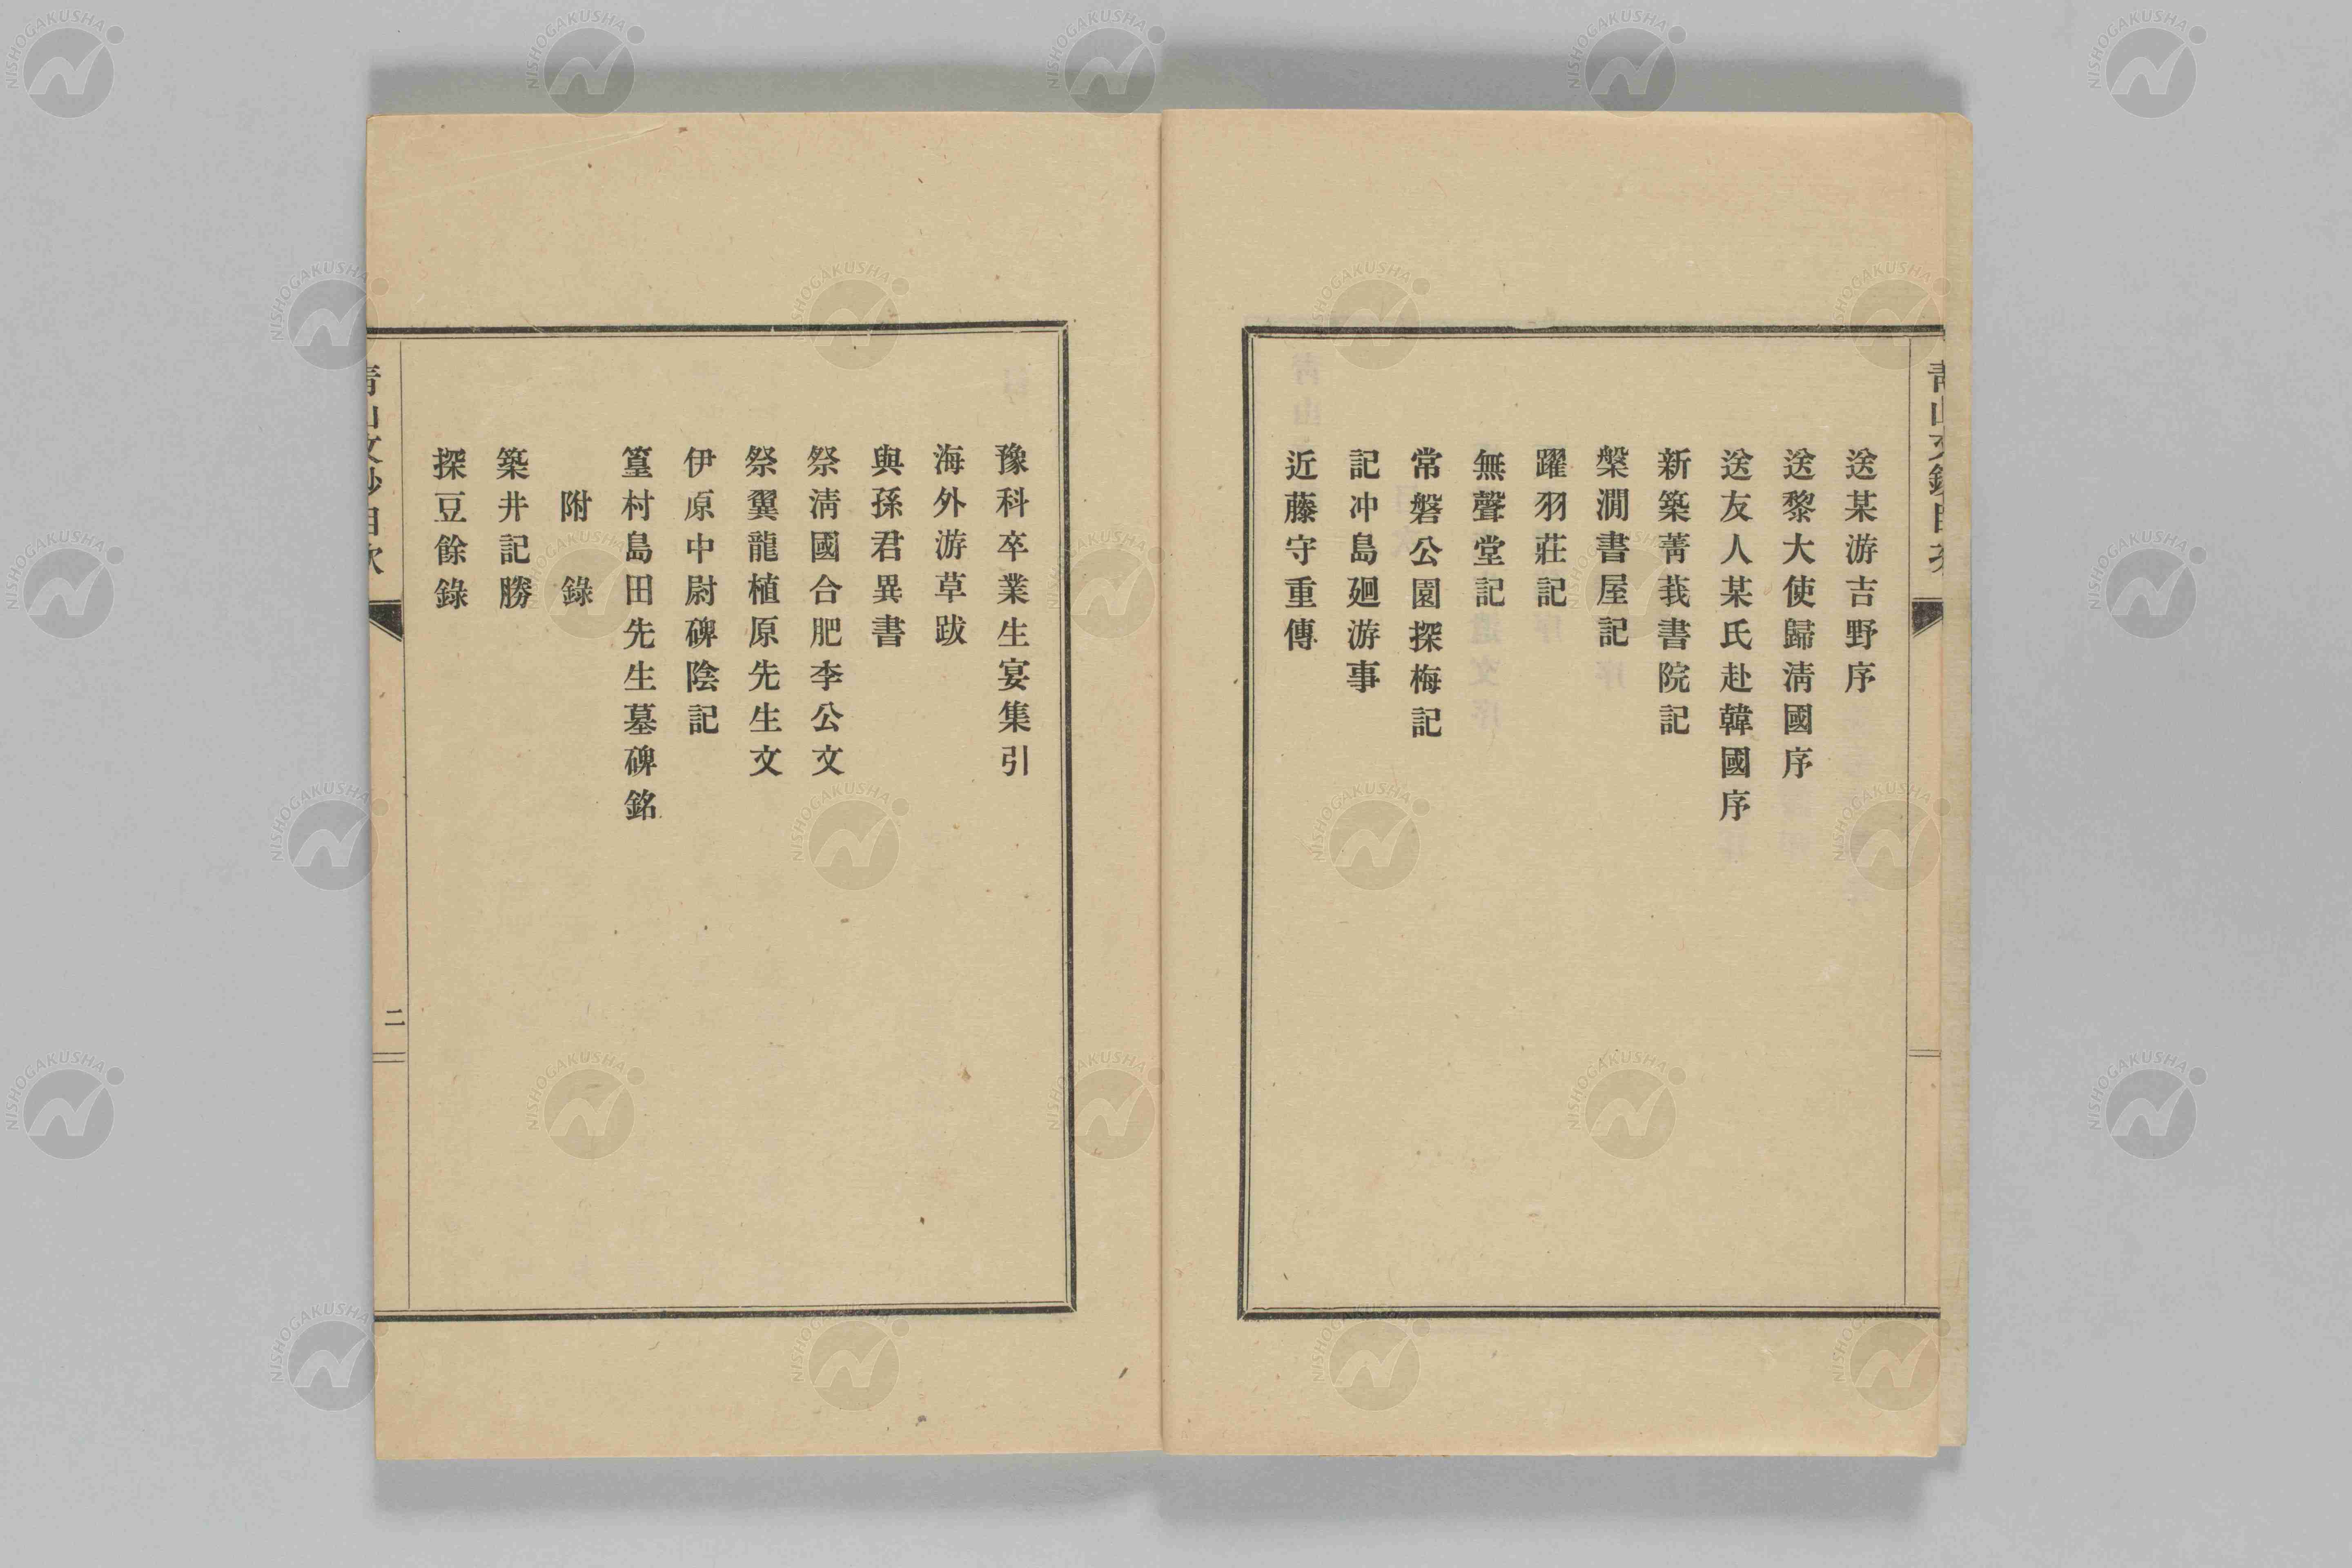 送某游吉野序
送黎大使歸淸國序
送友人某氏赴韓國序
新築菁莪書院記
槃澗書屋記
躍羽莊記
無聲堂記
常磐公園探梅記
記冲島廻游事
近藤守重傳
豫科卒業生宴集引
海外游草跋
與孫君異書
祭淸國合肥李公文
祭翼龍植原先生文
伊原中尉碑陰記
篁村島田先生墓碑銘
附錄
築井記勝
探豆餘錄
靑山文鈔目次
二
NISHOGAKUSHA